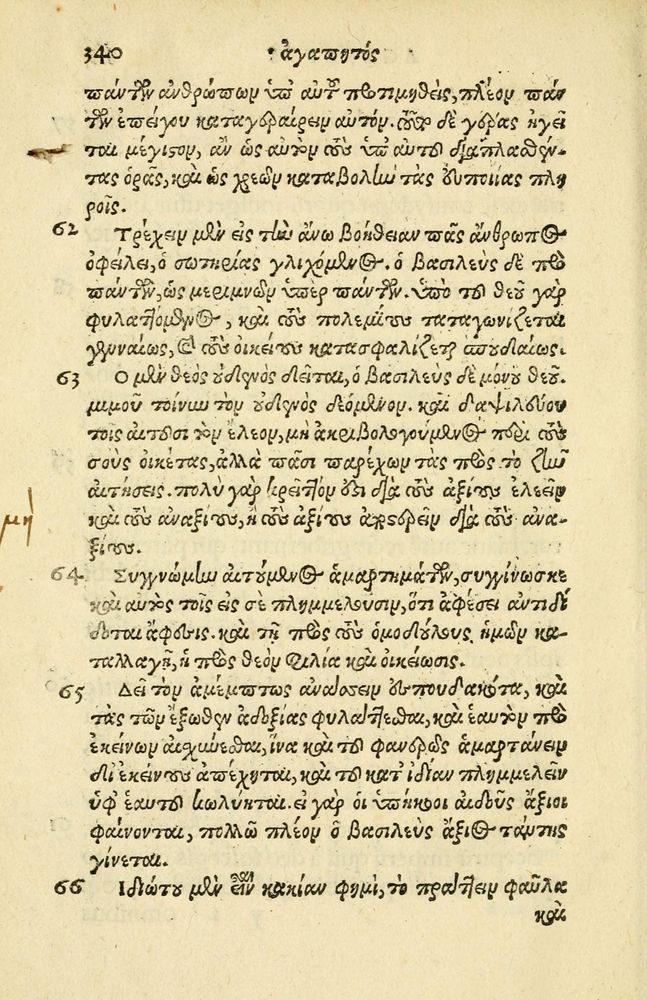 340 ἀγαπητός
πάντων ἀνθρώπων ὑπ' αὐτοῦ προτιμηθεὶς, πλέον πάν
των ἐπείγου καταγεραίρειν αὐτόν. τοῦτο δὲ γέρας ἡγεῖ
ται μέγιστον, ἂν ὡς αὐτὸν τοὺς ὑπ' αὐτοῦ διαπλασθέν-
τας ὁρᾷς, καὶ ὡς χρεῶν καταβολὴν τὰς εὐποιίας πλη
ροῖς.
62 Τρέχειν μὲν εἰς τὴν ἄνω βοήθειαν πᾶς ἄνθρωπος
ὀφείλει, ὁ σωτηρίας γλιχόμενος. ὁ βασιλεὺς δὲ πρὸ
πάντων, ὡς μεριμνῶν ὑπὲρ πάντων. ὑπὸ τοῦ θεοῦ γὰρ
φυλαττόμενος, καὶ τοὺς πολεμίους ταταγωνίζεται
γενναίως, καὶ τοὺς οἰκείους κατασφαλίζεται σπουδαίως.
63 Ὁ μὲν θεὸς οὐδενὸς δεῖται, ὁ βασιλεὺς δὲ μόνου θεοῦ.
μιμοῦ τοίνυν τὸν οὐδενὸς δεόμενον. καὶ δαψιλεύου
τοῖς αἰτοῦσι τὸν ἔλεον, μὴ ἀκριβολογούμενος περὶ τοὺς
σοὺς οἰκέτας, ἀλλὰ πᾶσι παρέχων τὰς πρὸς τὸ ζῆν
αἰτήσεις. πολὺ γὰρ κρεῖττόν ἐστι διὰ τοὺς ἀξίους ἐλεεῖν
μὴ
καὶ τοὺς ἀναξίους, ἢ τοὺς ἀξίους ἀποστερεῖν διὰ τοὺς ἀνα-
ξίους.
64 Συγγνώμην αἰτούμενος ἁμαρτημάτων, συγγίνωσκε
καὶ αὐτὸς τοῖς εἰς σὲ πλημμελοῦσιν, ὅτι ἀφέσει ἀντιδί
δοται ἄφεσις. καὶ τῇ πρὸς τοὺς ὁμοδούλους ἡμῶν κα-
ταλλαγῇ, ἡ πρὸς θεὸν φιλία καὶ οἰκείωσις.
65 Δεῖ τὸν ἀμέμπτως ἀνάσσειν ἐσπουδακότα, καὶ
τὰς τῶν ἔξωθεν ἀδοξίας φυλάττεσθαι, καὶ ἑαυτὸν πρὸ
ἐκείνων αἰσχύνεσθαι, ἵνα καὶ τοῦ φανερῶς ἁμαρτάνειν
δι' ἐκείνους ἀπέχηται, καὶ τοῦ κατ' ἰδίαν πλημμελεῖν
ὑφ' ἑαυτοῦ κωλύηται. εἰ γὰρ οἱ ὑπήκοοι αἰδοῦς ἄξιοι
φαίνονται, πολλῷ πλέον ὁ βασιλεὺς ἄξιος ταύτης
γίνεται.
66 Ἰδιώτου μὲν εἶναι κακίαν φημὶ, τὸ πράττειν φαῦλα
καὶ